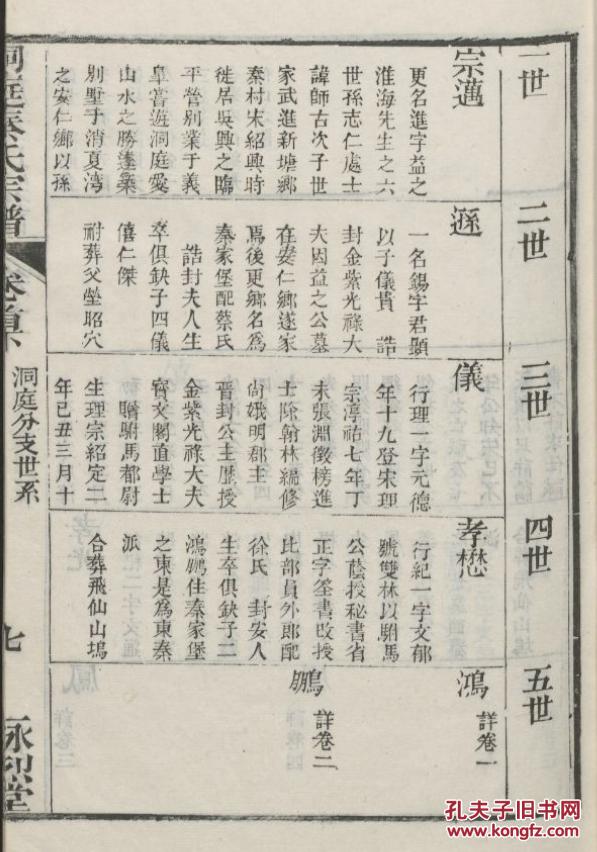 一世
宗邁
更名進字益之
淮海先生之六
世孫志仁處士
諱師古次子世
家武進新塘鄉
秦村宋紹興時
徙居吳興之臨
平營別業于義
皐嘗遊洞庭愛
山水之勝遂築
別墅于消夏湾
之安仁鄉以孫
二世
遜
一名錫字君顯
以子儀貴 誥
封金紫光祿大
夫因益之公墓
在安仁鄉遂家
焉後更鄉名為
秦家堡配蔡氏
誥封夫人生
卒俱缺子四儀
僖仁傑
祔葬父塋昭穴
三世
儀
行理一字元德
年十九登宋理
宗淳祐七年丁
未張淵微榜進
士除翰林編修
尚娥明郡主
晉封公主歷授
金紫光祿大夫
寳文閣直學士
贈駙馬都尉
生理宗紹定二
年己丑三月十
四世
孝懋
行紀一字文郁
號雙林以駙馬
公蔭授秘書省
正字筌書改授
比部員外郎配
徐氏 封安人
生卒俱缺子二
鴻鵬住秦家堡
之東是為東秦
派
合葬飛仙山塢
五世
鴻
詳卷一
鵬
詳卷二
洞庭秦氏宗譜
卷首下
洞庭分支世系
七
永烈堂
孔夫子旧书网
www.kongfz.com